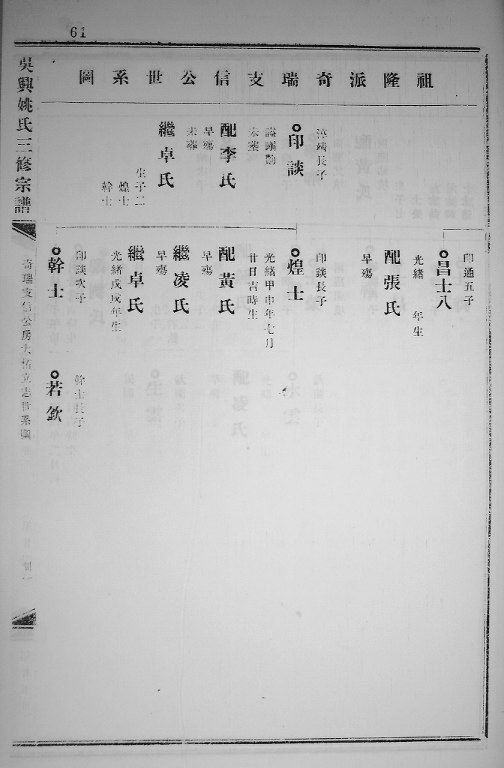 61
祖隆派奇瑞支信公世系圖
淳靖長子
印談
未葬
配李氏
早殤
未葬
繼卓氏
生子二
煌士
幹士
印通五子
昌士八
光緒 年生
配張氏
早殤
印談長子
煌士
光緒甲申年七月
廿日吉時生
配黃氏
早殤
繼凌氏
早殤
繼卓氏
光緒戊戌年生
印談次子
幹士
幹士長子
若欽
吳興姚氏三修宗譜
奇瑞支信公房大
世系圖